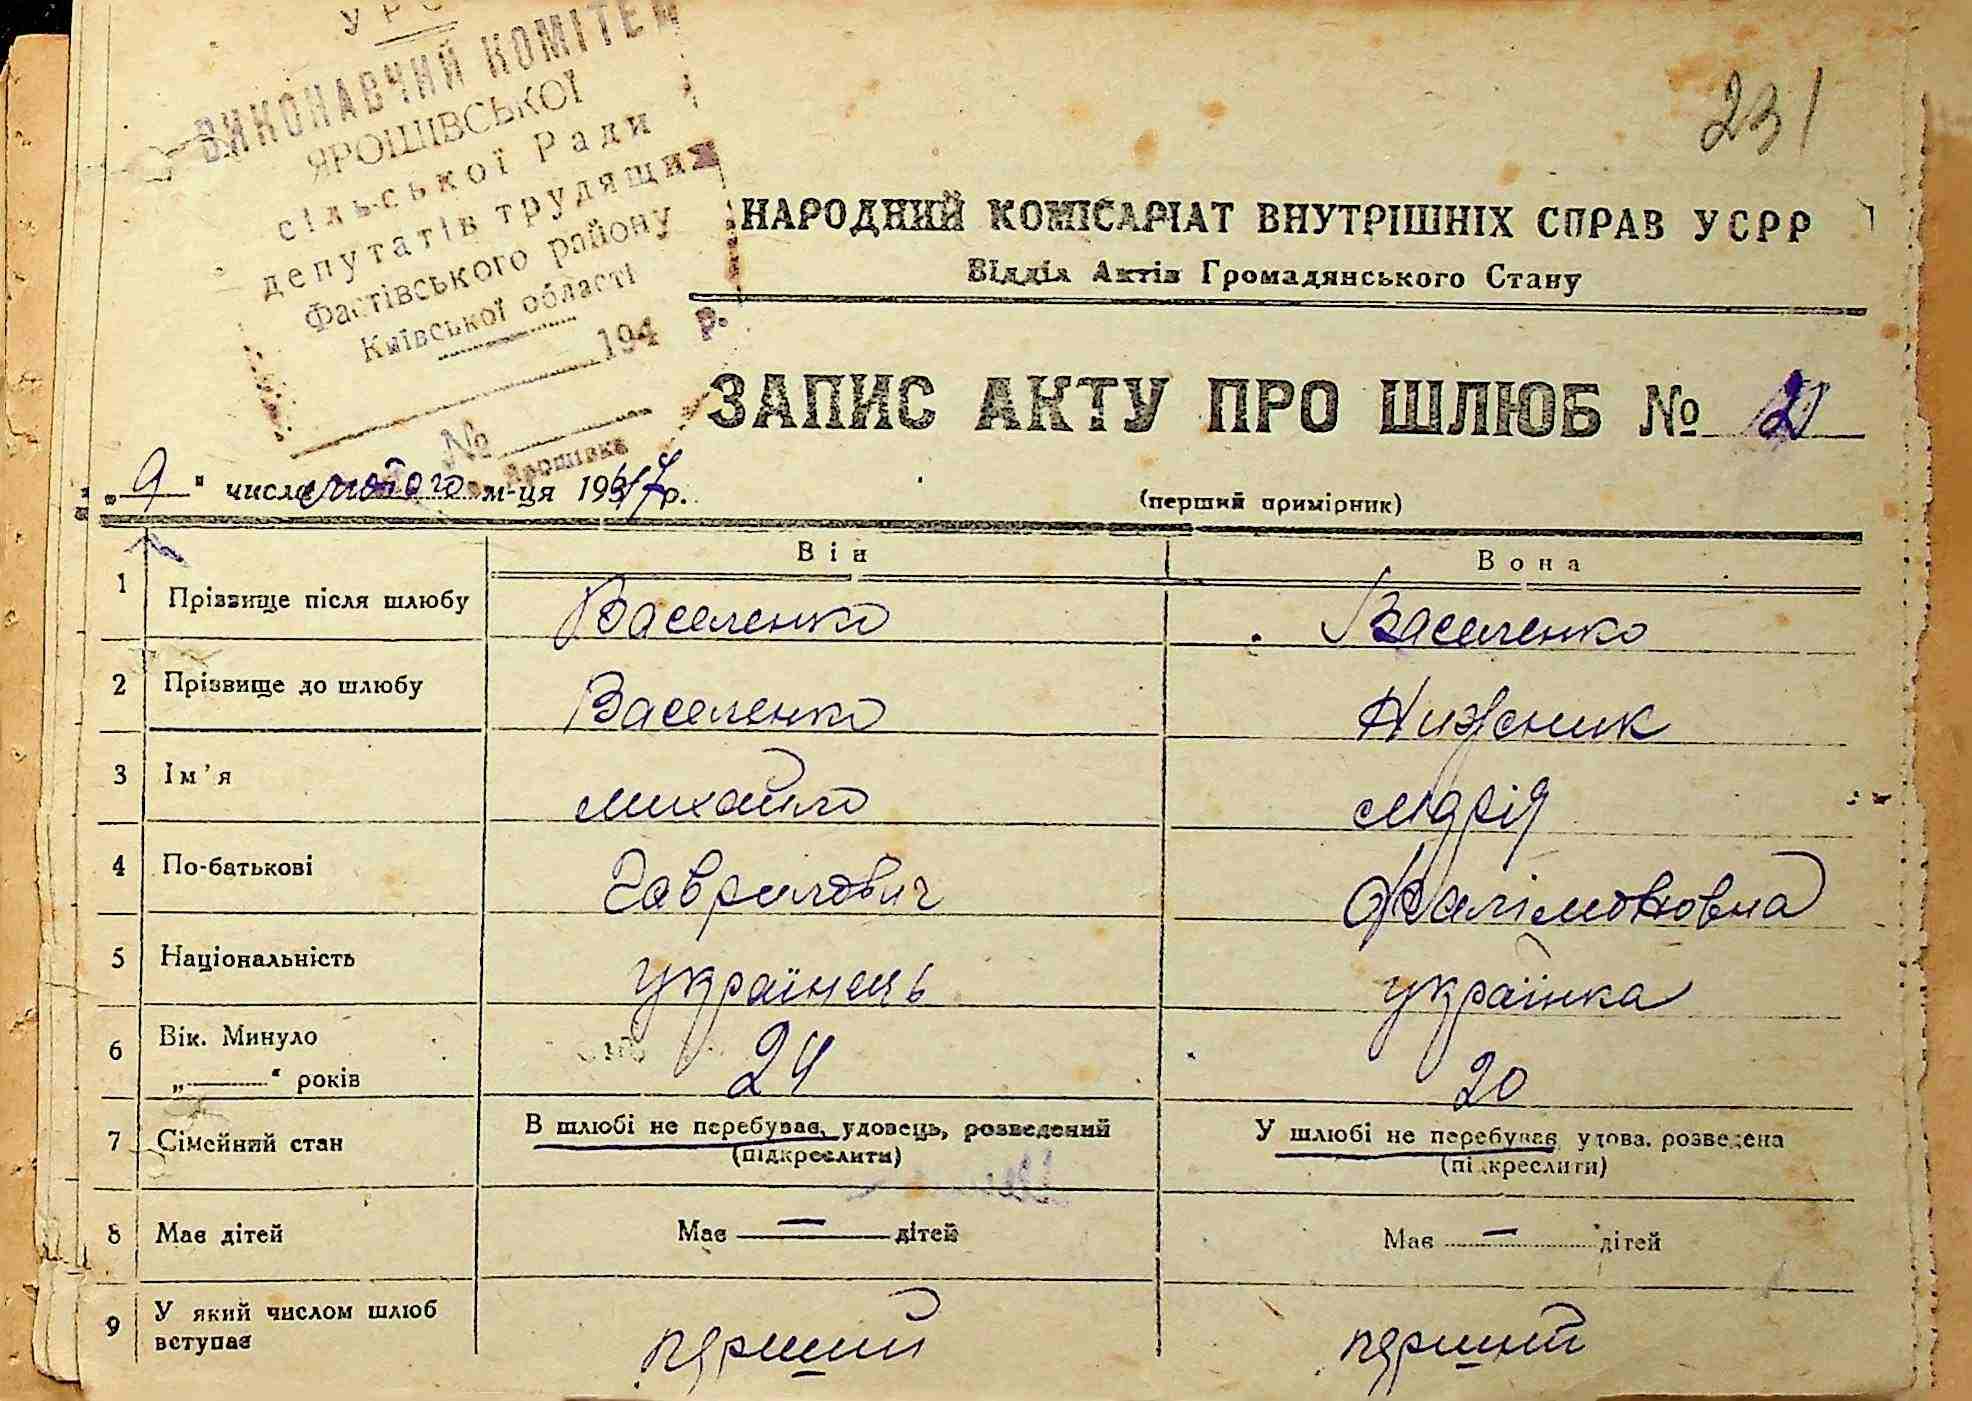 УРСР
ВИКОНАВЧИЙ КОМІТЕТ
ЯРОШІВСЬКОЇ
сільської Ради
депутатів трудящих
Фастівського району
Київської області
194 р.
№
с. Ярошівка
231
НАРОДНИЙ КОМІСАРІАТ ВНУТРІШНІХ СПРАВ УСРР
Відділ Актів Громадянського Стану
ЗАПИС АКТУ ПРО ШЛЮБ № 21
„9“ числа лютого м-ця 1947 р.
(перший примірник)
Він Вона
1 Прізвище після шлюбу Василенко Василенко
2 Прізвище до шлюбу Василенко Нижник
3 Ім'я Михайло Марія
4 По-батькові Гаврилович Філімоновна
5 Національність українець українка
6 Вік. Минуло „——“ років 24 20
7 Сімейний стан В шлюбі не перебував, удовець, розведений (підкреслити) У шлюбі не перебував удова. розведена (підкреслити)
8 Має дітей Має — дітей Має — дітей
9 У який числом шлюб вступає перший перший